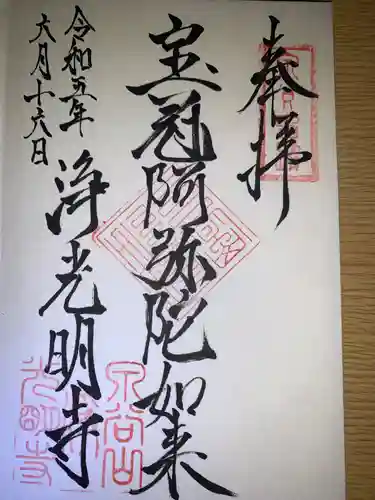 奉拝
宝冠阿弥陀如来
令和五年
六月十六日
浄光明寺
泉谷山